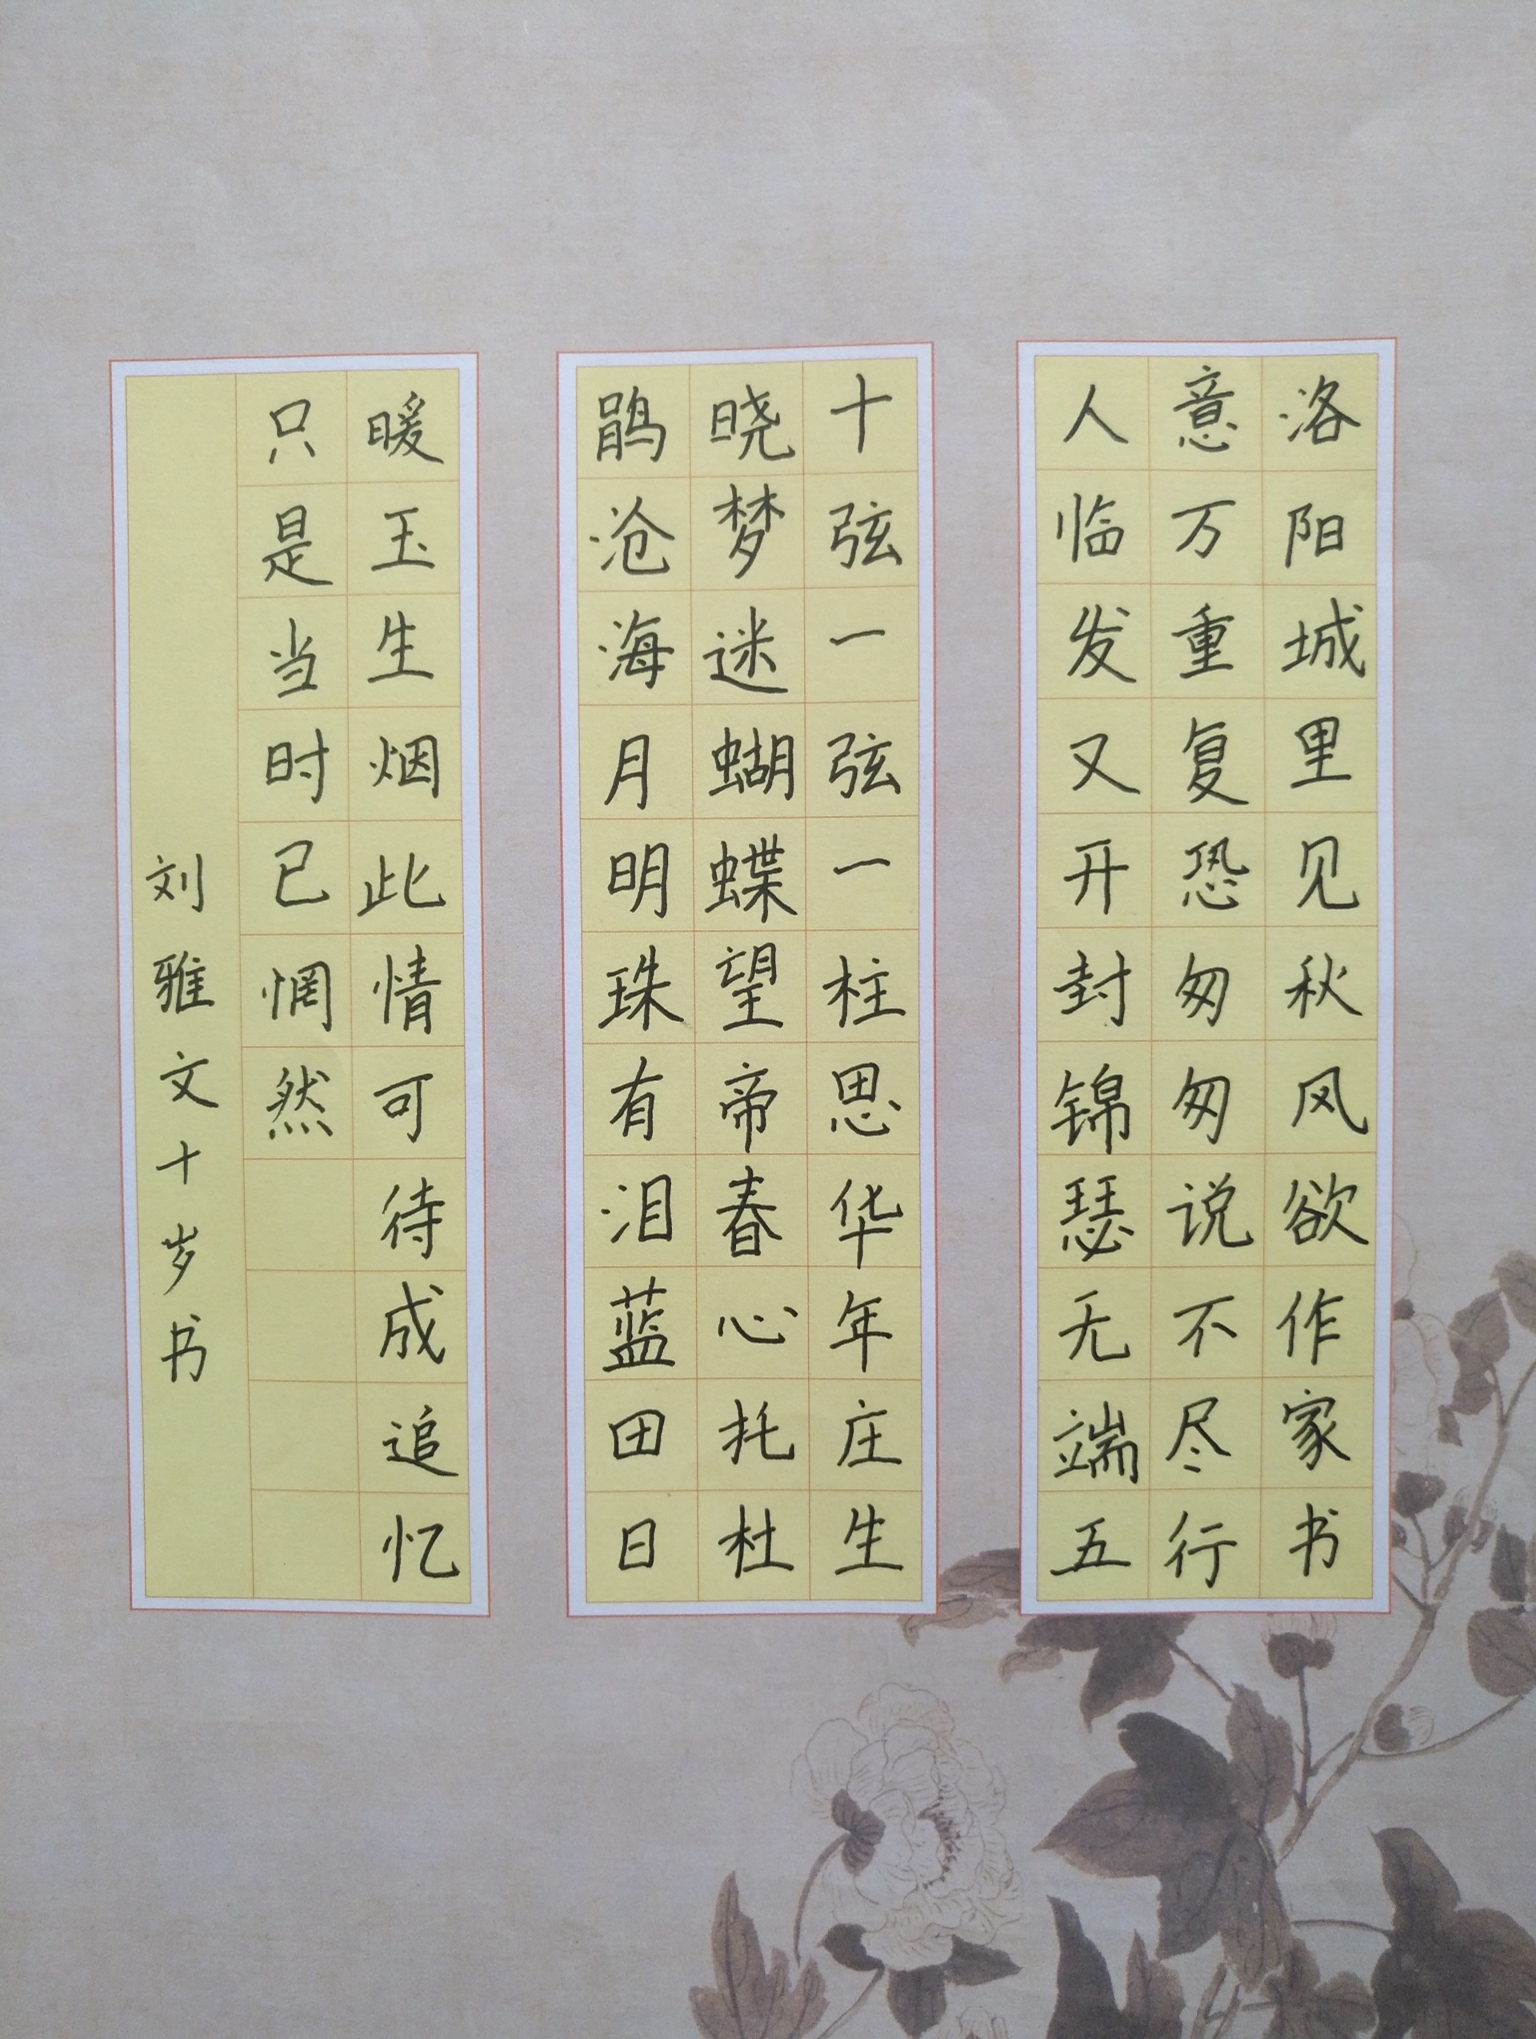 洛阳城里见秋风欲作家书
意万重复恐匆匆说不尽行
人临发又开封锦瑟无端五
十弦一弦一柱思华年庄生
晓梦迷蝴蝶望帝春心托杜
鹃沧海月明珠有泪蓝田日
暖玉生烟此情可待成追忆
只是当时已惘然
刘雅文十岁书